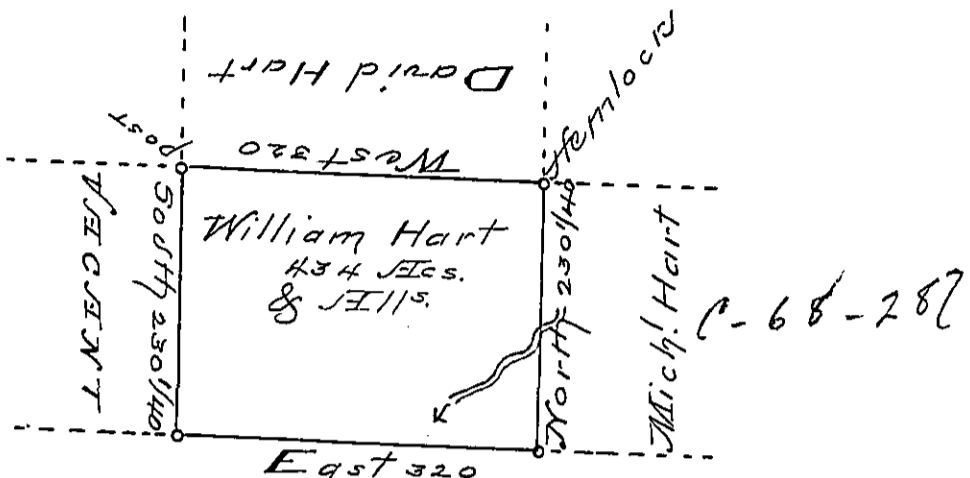 David Hart
Hemlock
Post
West 320
VACANT
South 230 1/40
William Hart
434 Acs.
& Alls.
North 230 1/40
Mich! Hart
C-68-282
East 320